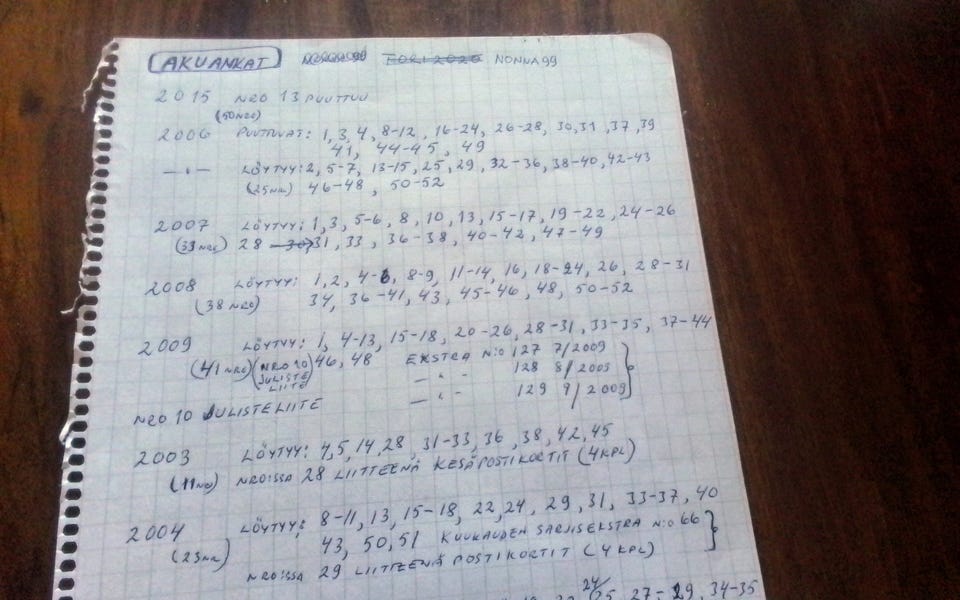 AKUANKAT NONNA99
2015 NRO 13 PUUTTUU
(50NRO)
2006 PUUTTUVAT: 1, 3, 4, 8-12, 16-24, 26-28, 30,31, 37, 39
41, 44-45, 49
—"— LÖYTYY: 2, 5-7, 13-15, 25, 29, 32-36, 38-40, 42-43
(25NR) 46-48, 50-52
2007 LÖYTYY: 1, 3, 5-6, 8, 10, 13, 15-17, 19-22, 24-26
(33NRO) 28 31, 33, 36-38, 40-42, 47-49
2008 LÖYTYY: 1, 2, 4-6, 8-9, 11-14, 16, 18-24, 26, 28-31
(38 NRO) 34, 36-41, 43, 45-46, 48, 50-52
2009 LÖYTYY: 1, 4-13, 15-18, 20-26, 28-31, 33-35, 37-44
(41 NRO) (NRO 10 46, 48 EKSTRA N:O 127 7/2009
JULISTE —"— 128 8/2009
LIITE) —"— 129 9/2009
NRO 10 JULISTELIITE
2003 LÖYTYY: 4, 5, 14, 28, 31-33, 36, 38, 42, 45
(11NRO) NRO:SSA 28 LIITTEENÄ KESÄPOSTIKORTIT (4KPL)
2004 LÖYTYY: 8-11, 13, 15-18, 22, 24, 29, 31, 33-37, 40
(23NR) 43, 50, 51 KUUKAUDEN SARJISEKSTRA N:O 66
NRO:SSA 29 LIITTEENÄ POSTIKORTIT (4 KPL)
24/25, 27-29, 34-35